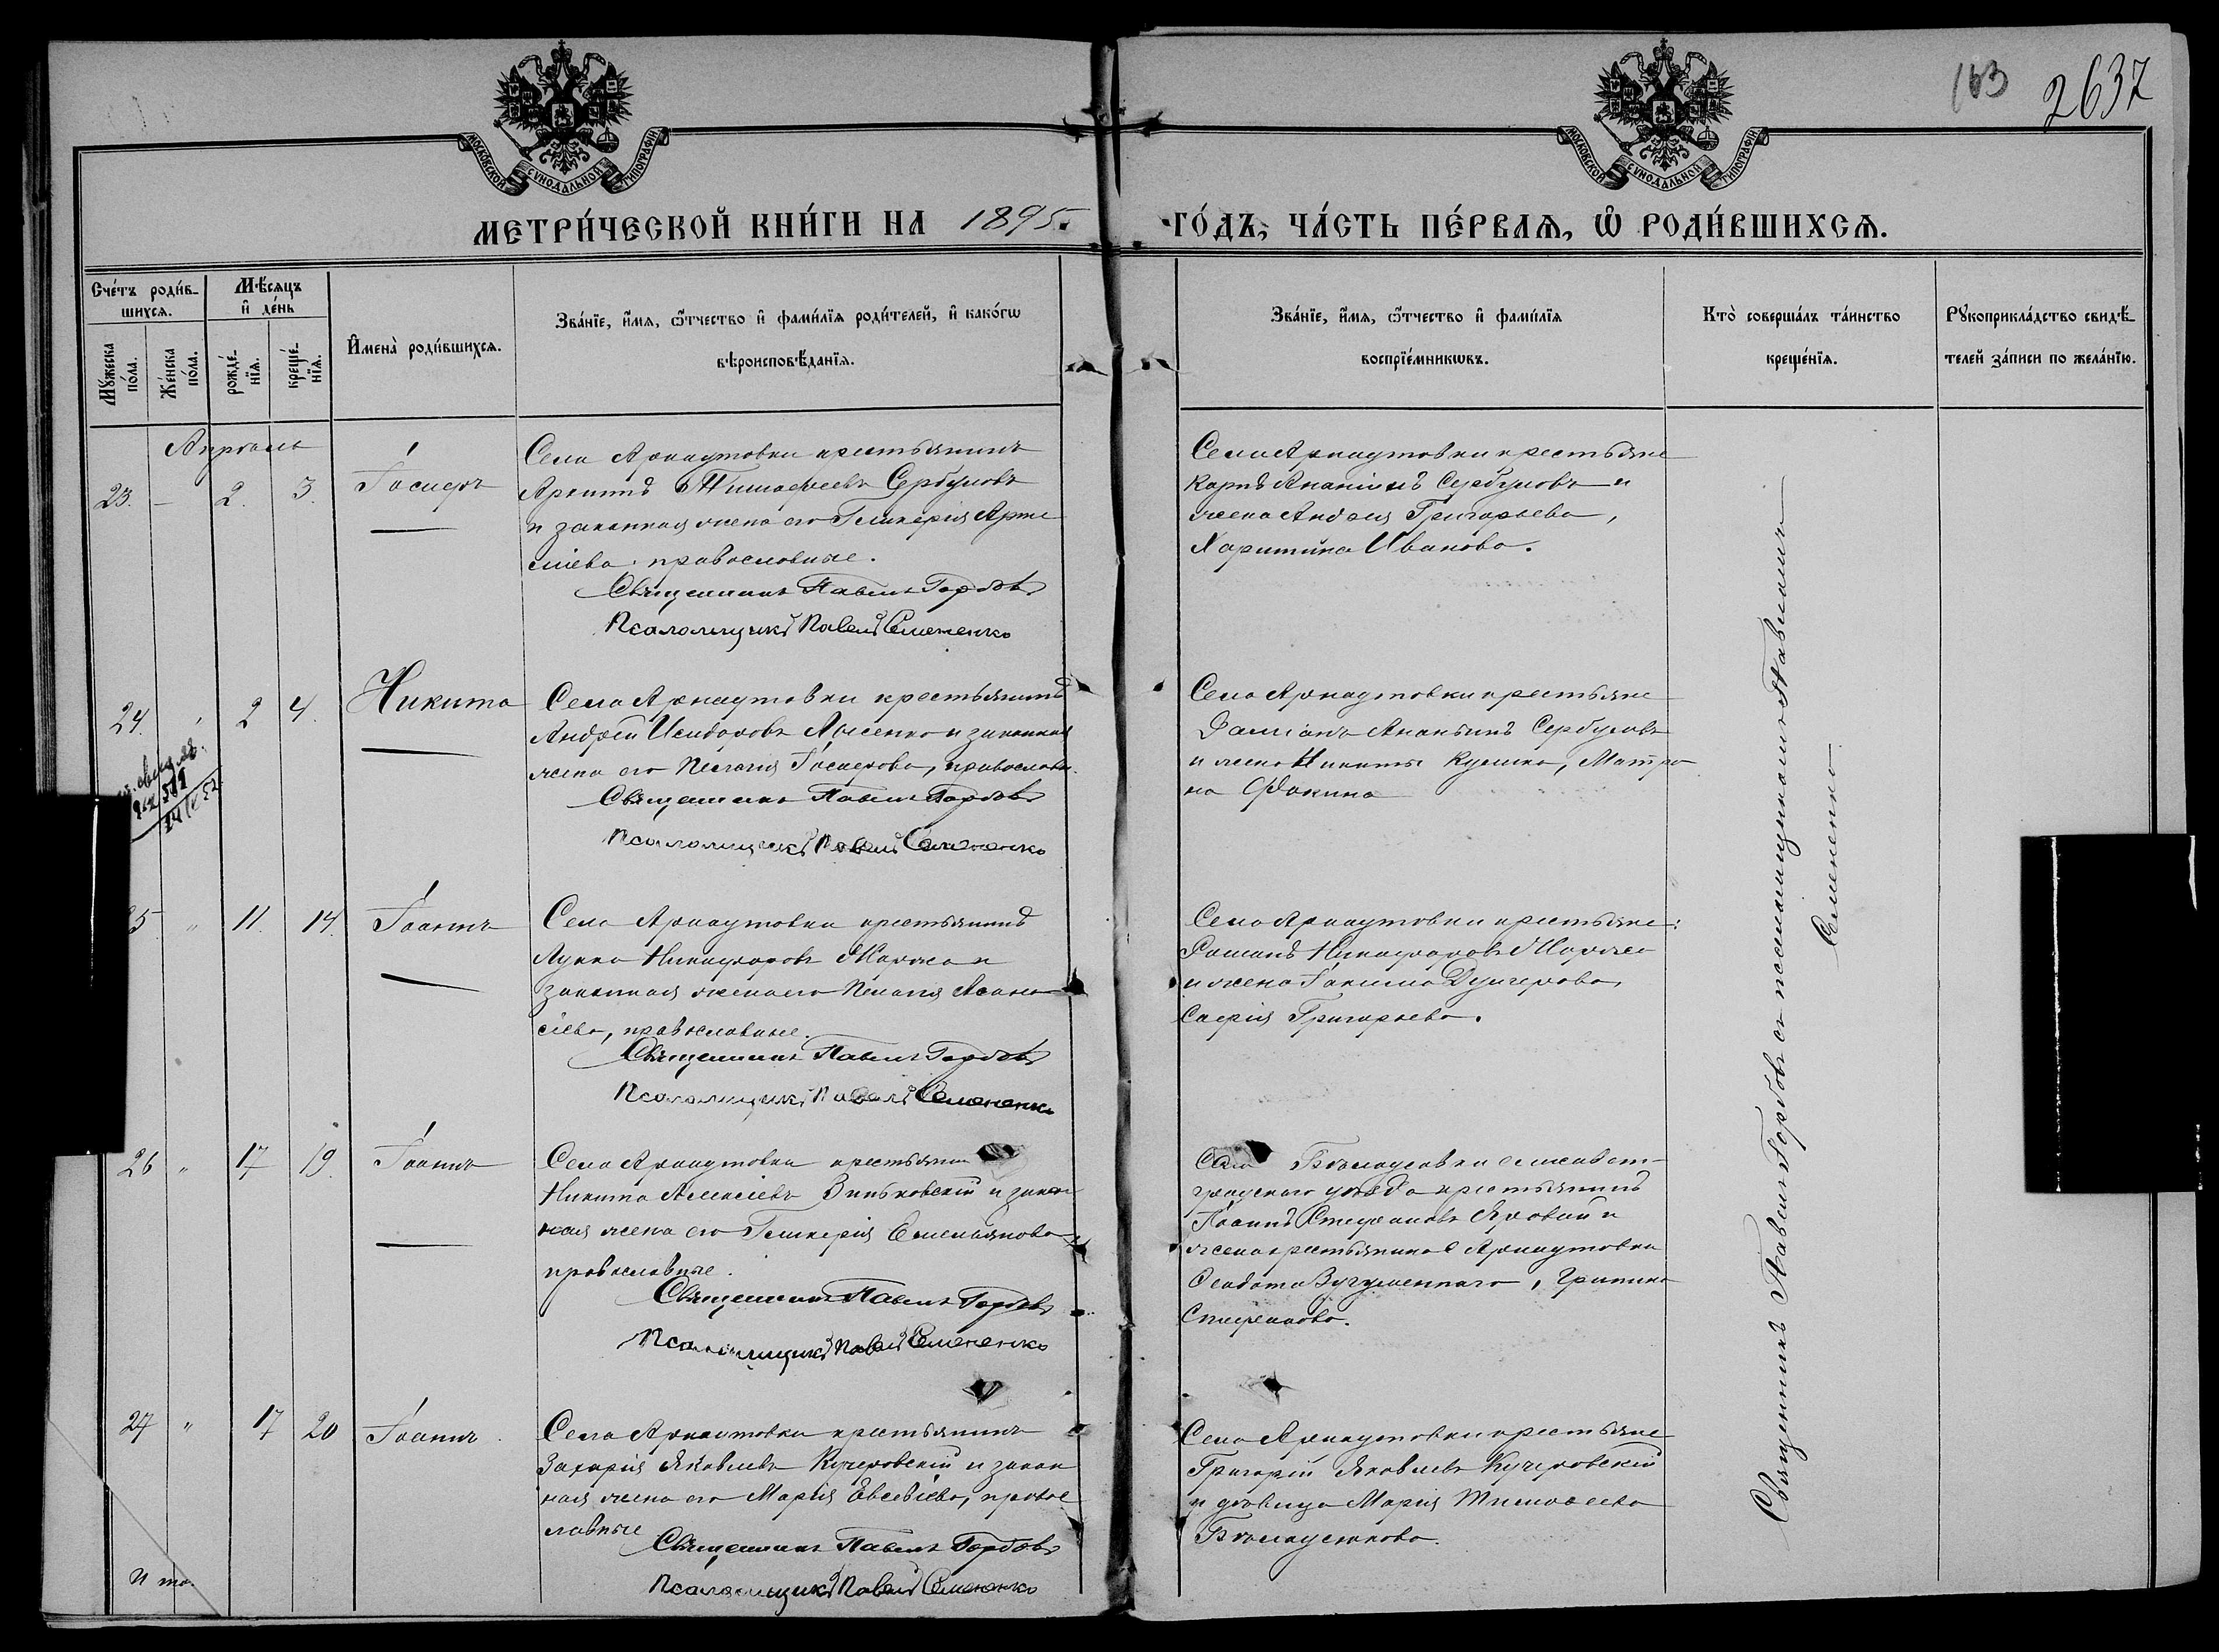 163
2637
МОСКОВСКОЙ СѴНОДАЛЬНОЙ ТИПОГРАФІИ
МОСКОВСКОЙ СѴНОДАЛЬНОЙ ТИПОГРАФІИ
МЕТРИ́ЧЕСКОЙ КНИ́ГИ НА 1895. ГО́ДЪ, ЧА́СТЬ ПЕ́РВАѦ, Ѡ РОДИ́ВШИХСѦ.
Сче́тъ роди́в-
шихсѧ.
Мꙋ́жеска по́ла.
Же́нска по́ла.
Мѣ́сѧцъ
и҆ де́нь
рожде́-
нїѧ.
креще́-
нїѧ.
И҆мена̀ роди́вшихсѧ.
Зва́нїе, и҆́мѧ, ѻ҆́тчество и҆ фами́лїѧ роди́телей, и҆ како́гѡ
вѣроисповѣ́данїѧ.
Зва́нїе, и҆́мѧ, ѻ҆́тчество и҆ фами́лїѧ
воспрїе́мникѡвъ.
Кто̀ соверша́лъ та́инство
креще́нїѧ.
Рꙋкоприкла́дство свидѣ́-
телей за́писи по жела́нїю.
Апрѣль
23. – 2. 3. Іосифъ
Села Арнаутовки крестьянинъ
Архипъ Тимофеевъ Сербуловъ
и законная жена его Гликерія Арте
міева православные.
Священникъ Павелъ Горбовъ
Псаломщикъ Павелъ Семененко
Села Арнаутовки крестьяне
Карпъ Ананіинъ Сербуловъ и
жена Андрея Григорьева,
Харитина Иванова.
24. 2 4. Никита
Села Арнаутовки крестьянинъ
Андрей Исидоровъ Лысенко и законная
жена его Пелагія Іосифова, православн.
Священникъ Павелъ Горбовъ
Псаломщикъ Павелъ Семененко
Села Арнаутовки крестьяне
Даміанъ Ананьинъ Сербуловъ
и жена Никиты Матро
на Фокина
5 " 11. 14. Іоаннъ
Села Арнаутовки крестьянинъ
Лукка Никифоровъ и
законная жена его Пелагія Афана
сіева, православные.
Священникъ Павелъ Горбовъ
Псаломщикъ Павелъ Семененко
Села Арнаутовки крестьяне:
Романъ Никифоровъ
и жена Іакима
Софія Григорьева.
26 " 17 19. Іоаннъ
Села Арнаутовки крестьянин
Никита Алексіевъ Зиньковскій и закон
ная жена его Гликерія Емельянова
православные.
Священникъ Павелъ Горбовъ
Псаломщикъ Павелъ Семененко
Села елисавет-
градскаго уѣзда крестьянинъ
Іоаннъ Стефановъ Яровый и
жена крестьянина с Арнаутовки
Феодота Агрипина
Стефанова.
27 " 17 20 Іоаннъ
Села Арнаутовки крестьянинъ
Захарія Яковлевъ Кучеровскій и закон
ная жена его Марія Евсевіева, правос
лавные
Священникъ Павелъ Горбовъ
Псаломщикъ Павелъ Семененко
Села Арнаутовки крестьяне
Григорій Яковлевъ Кучеровскій
и дѣвица Марія Тимофеева
Священникъ Павелъ Горбовъ съ псаломщикомъ Павломъ
Семененко